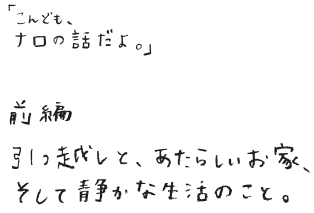 「こんども、
ナロの話だよ。」
前編
引っ越しと、あたらしいお家、
そして静かな生活のこと。